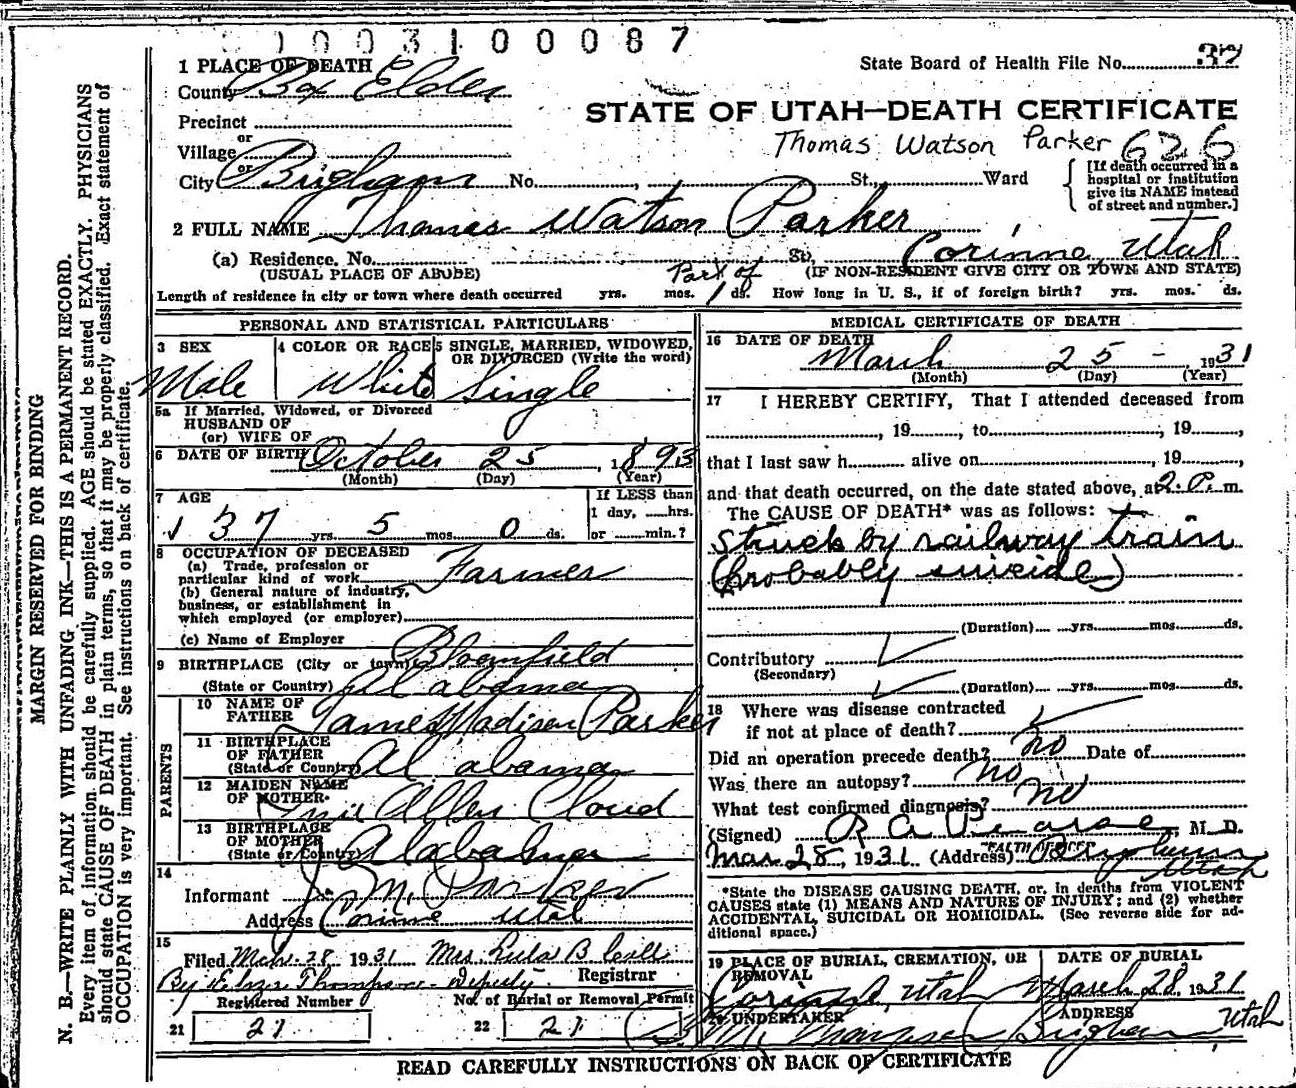 1003100087
1 PLACE OF DEATH
State Board of Health File No. 37
County Box Elder
STATE OF UTAH—DEATH CERTIFICATE
Precinct
Thomas Watson Parker 626
or
Village
or
City Brigham No. , St. Ward
[If death occurred in a hospital or institution give its NAME instead of street and number.]
2 FULL NAME Thomas Watson Parker
(a) Residence. No. St., Corinne, Utah
(USUAL PLACE OF ABODE) (IF NON-RESIDENT GIVE CITY OR TOWN AND STATE)
Part of
Length of residence in city or town where death occurred yrs. mos. 1 ds. How long in U. S., if of foreign birth? yrs. mos. ds.
PERSONAL AND STATISTICAL PARTICULARS
3 SEX 4 COLOR OR RACE 5 SINGLE, MARRIED, WIDOWED, OR DIVORCED (Write the word)
Male White Single
5a If Married, Widowed, or Divorced
HUSBAND OF
(or) WIFE OF
6 DATE OF BIRTH October 25, 1893
(Month) (Day) (Year)
7 AGE If LESS than
1 day, ......hrs.
37 yrs. 5 mos. 0 ds. or ......min.?
8 OCCUPATION OF DECEASED
(a) Trade, profession or
particular kind of work Farmer
(b) General nature of industry,
business, or establishment in
which employed (or employer)
(c) Name of Employer
9 BIRTHPLACE (City or town) Bloomfield
(State or Country) Alabama
PARENTS
10 NAME OF
FATHER James Madison Parker
11 BIRTHPLACE
OF FATHER
(State or Country) Alabama
12 MAIDEN NAME
OF MOTHER Allen Cloud
13 BIRTHPLACE
OF MOTHER
(State or Country) Alabama
14
Informant J. M. Parker
Address Corinne Utah
15
Filed Mch. 28 1931 Mrs. B.
By Thompson Deputy Registrar
Registered Number No. of Burial or Removal Permit
21 21 22 21
MEDICAL CERTIFICATE OF DEATH
16 DATE OF DEATH
March 25 - 1931
(Month) (Day) (Year)
17 I HEREBY CERTIFY, That I attended deceased from
, 19 , to , 19 ,
that I last saw h alive on , 19 ,
and that death occurred, on the date stated above, at 2.P. m.
The CAUSE OF DEATH* was as follows:
Struck by railway train
(probably suicide)
(Duration) yrs. mos. ds.
Contributory
(Secondary)
(Duration) yrs. mos. ds.
18 Where was disease contracted
if not at place of death?
Did an operation precede death? no Date of
Was there an autopsy? no
What test confirmed diagnosis? no
(Signed) R A Pearse, M. D.
Mar 28, 1931 (Address) Brigham
Utah
*State the DISEASE CAUSING DEATH, or, in deaths from VIOLENT
CAUSES state (1) MEANS AND NATURE OF INJURY; and (2) whether
ACCIDENTAL, SUICIDAL OR HOMICIDAL. (See reverse side for ad-
ditional space.)
19 PLACE OF BURIAL, CREMATION, OR REMOVAL DATE OF BURIAL
Corinne, Utah March 28, 1931
20 UNDERTAKER ADDRESS
Brigham Utah
READ CAREFULLY INSTRUCTIONS ON BACK OF CERTIFICATE
MARGIN RESERVED FOR BINDING
N. B.—WRITE PLAINLY WITH UNFADING INK—THIS IS A PERMANENT RECORD.
Every item of information should be carefully supplied. AGE should be stated EXACTLY. PHYSICIANS
should state CAUSE OF DEATH in plain terms, so that it may be properly classified. Exact statement of
OCCUPATION is very important. See instructions on back of certificate.